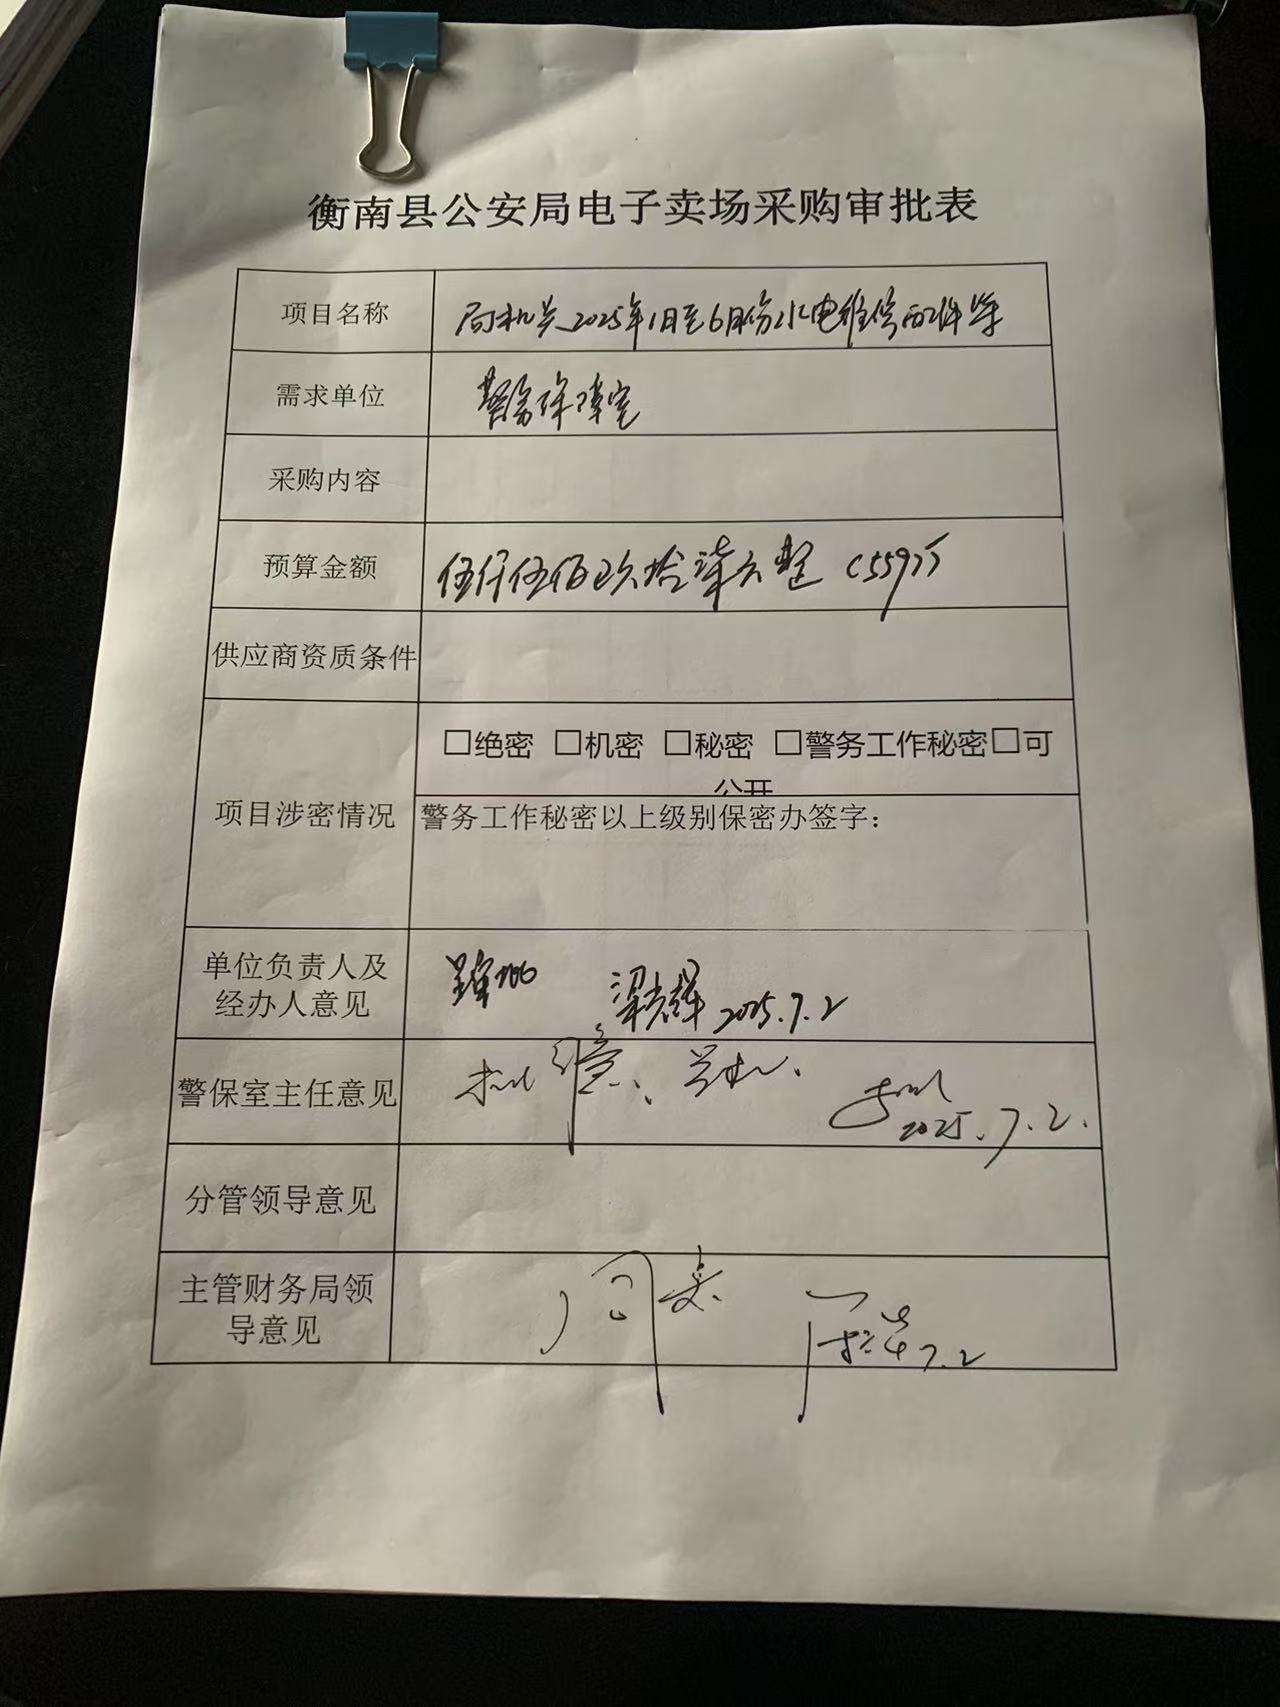 衡南县公安局电子卖场采购审批表
项目名称 局机关2025年1月至6月份水电维修配件等
需求单位 警务保障室
采购内容
预算金额 伍仟伍佰玖拾柒元整 (5597)
供应商资质条件
□绝密 □机密 □秘密 □警务工作秘密□可
公开
项目涉密情况 警务工作秘密以上级别保密办签字：
单位负责人及
经办人意见 梁光辉 2025.7.2
警保室主任意见 2025.7.2.
分管领导意见
主管财务局领
导意见 同意 7.2